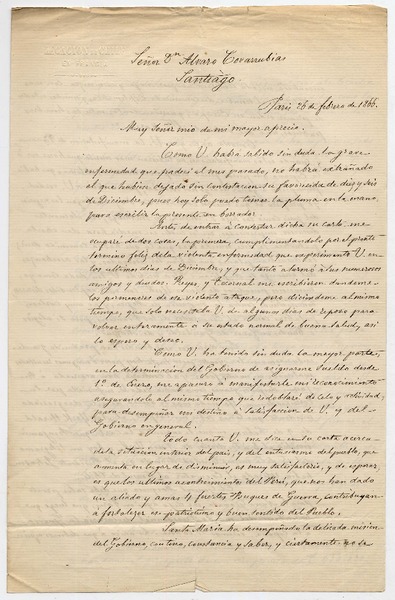 Señor Dn Alvaro Covarrubias
Santiago.
Paris 26 de febrero de 1866.
Muy Señor mio de mi mayor aprecio.
Como V. habrá sabido sin duda la grave
enfermedad que padecí el mes pasado, no habrá extrañado
el que hubiese dejado sin contestacion su favorecida de diez y seis
de Diciembre, pues hoy solo puedo tomar la pluma en la mano,
para escribir la presente en borrador.
Antes de entrar á contestar dicha su carta me
ocuparé de dos cosas, la primera, cumplimentandolo por el pronto
termino feliz de la violenta enfermedad que esperimentó V. en
los ultimos dias de Diciembre, y que tanto alarmó á sus numerosos
amigos y deudos. Reyes, y Tocornal me escribieron dandome
los pormenores de su violento ataque, pero diciendome al mismo
tiempo, que solo necesitaba V. de algunos dias de reposo para
volver enteramente á su estado normal de buena salud, asi
lo espero y deseo.
Como V. ha tenido sin duda la mayor parte,
en la determinacion del Gobierno de asignarme sueldo desde
1º de Enero, me apresuro á manifestarle mi reconocimiento
asegurandolo al mismo tiempo que redoblaré de celo y actividad,
para desempeñar mi destino á satisfaccion de V. y del
Gobierno en general.
Todo cuanto V. me dice en su carta acerca
de la situacion interior del pais, y del entusiasmo del pueblo, que
aumenta en lugar de disminuir, es muy satisfactorio, y de esperar
es que los ultimos acontecimientos del Perú, que nos han dado
un aliado y amas 4 fuertes Buques de Guerra, contribuyan
á fortalecer ese patriotismo y buen sentido del Pueblo.
Santa Maria ha desempeñado la delicada mision
del Gobierno, con tino, constancia y saber, y ciertamente no se